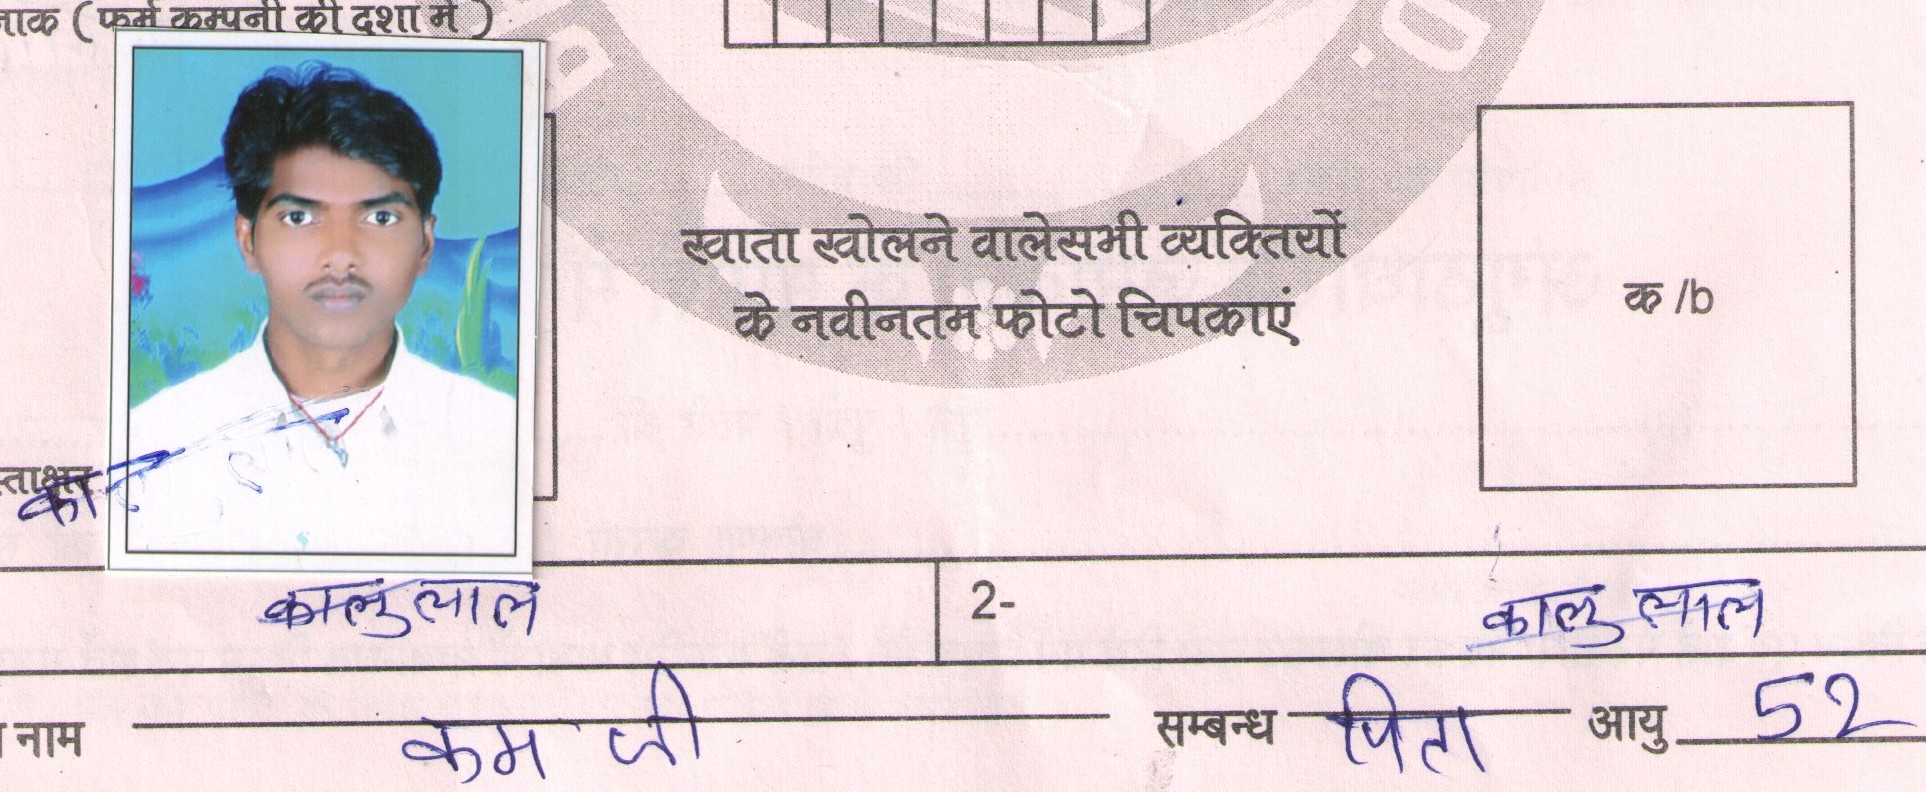 नाक ( फर्म कम्पनी की दशा में )
खाता खोलने वाले सभी व्यक्तियों
के नवीनतम फोटो चिपकाएं
क /b
स्ताक्षर
कालुलाल
2-
कालु लाल
नाम कम जी सम्बन्ध पिता आयु 52